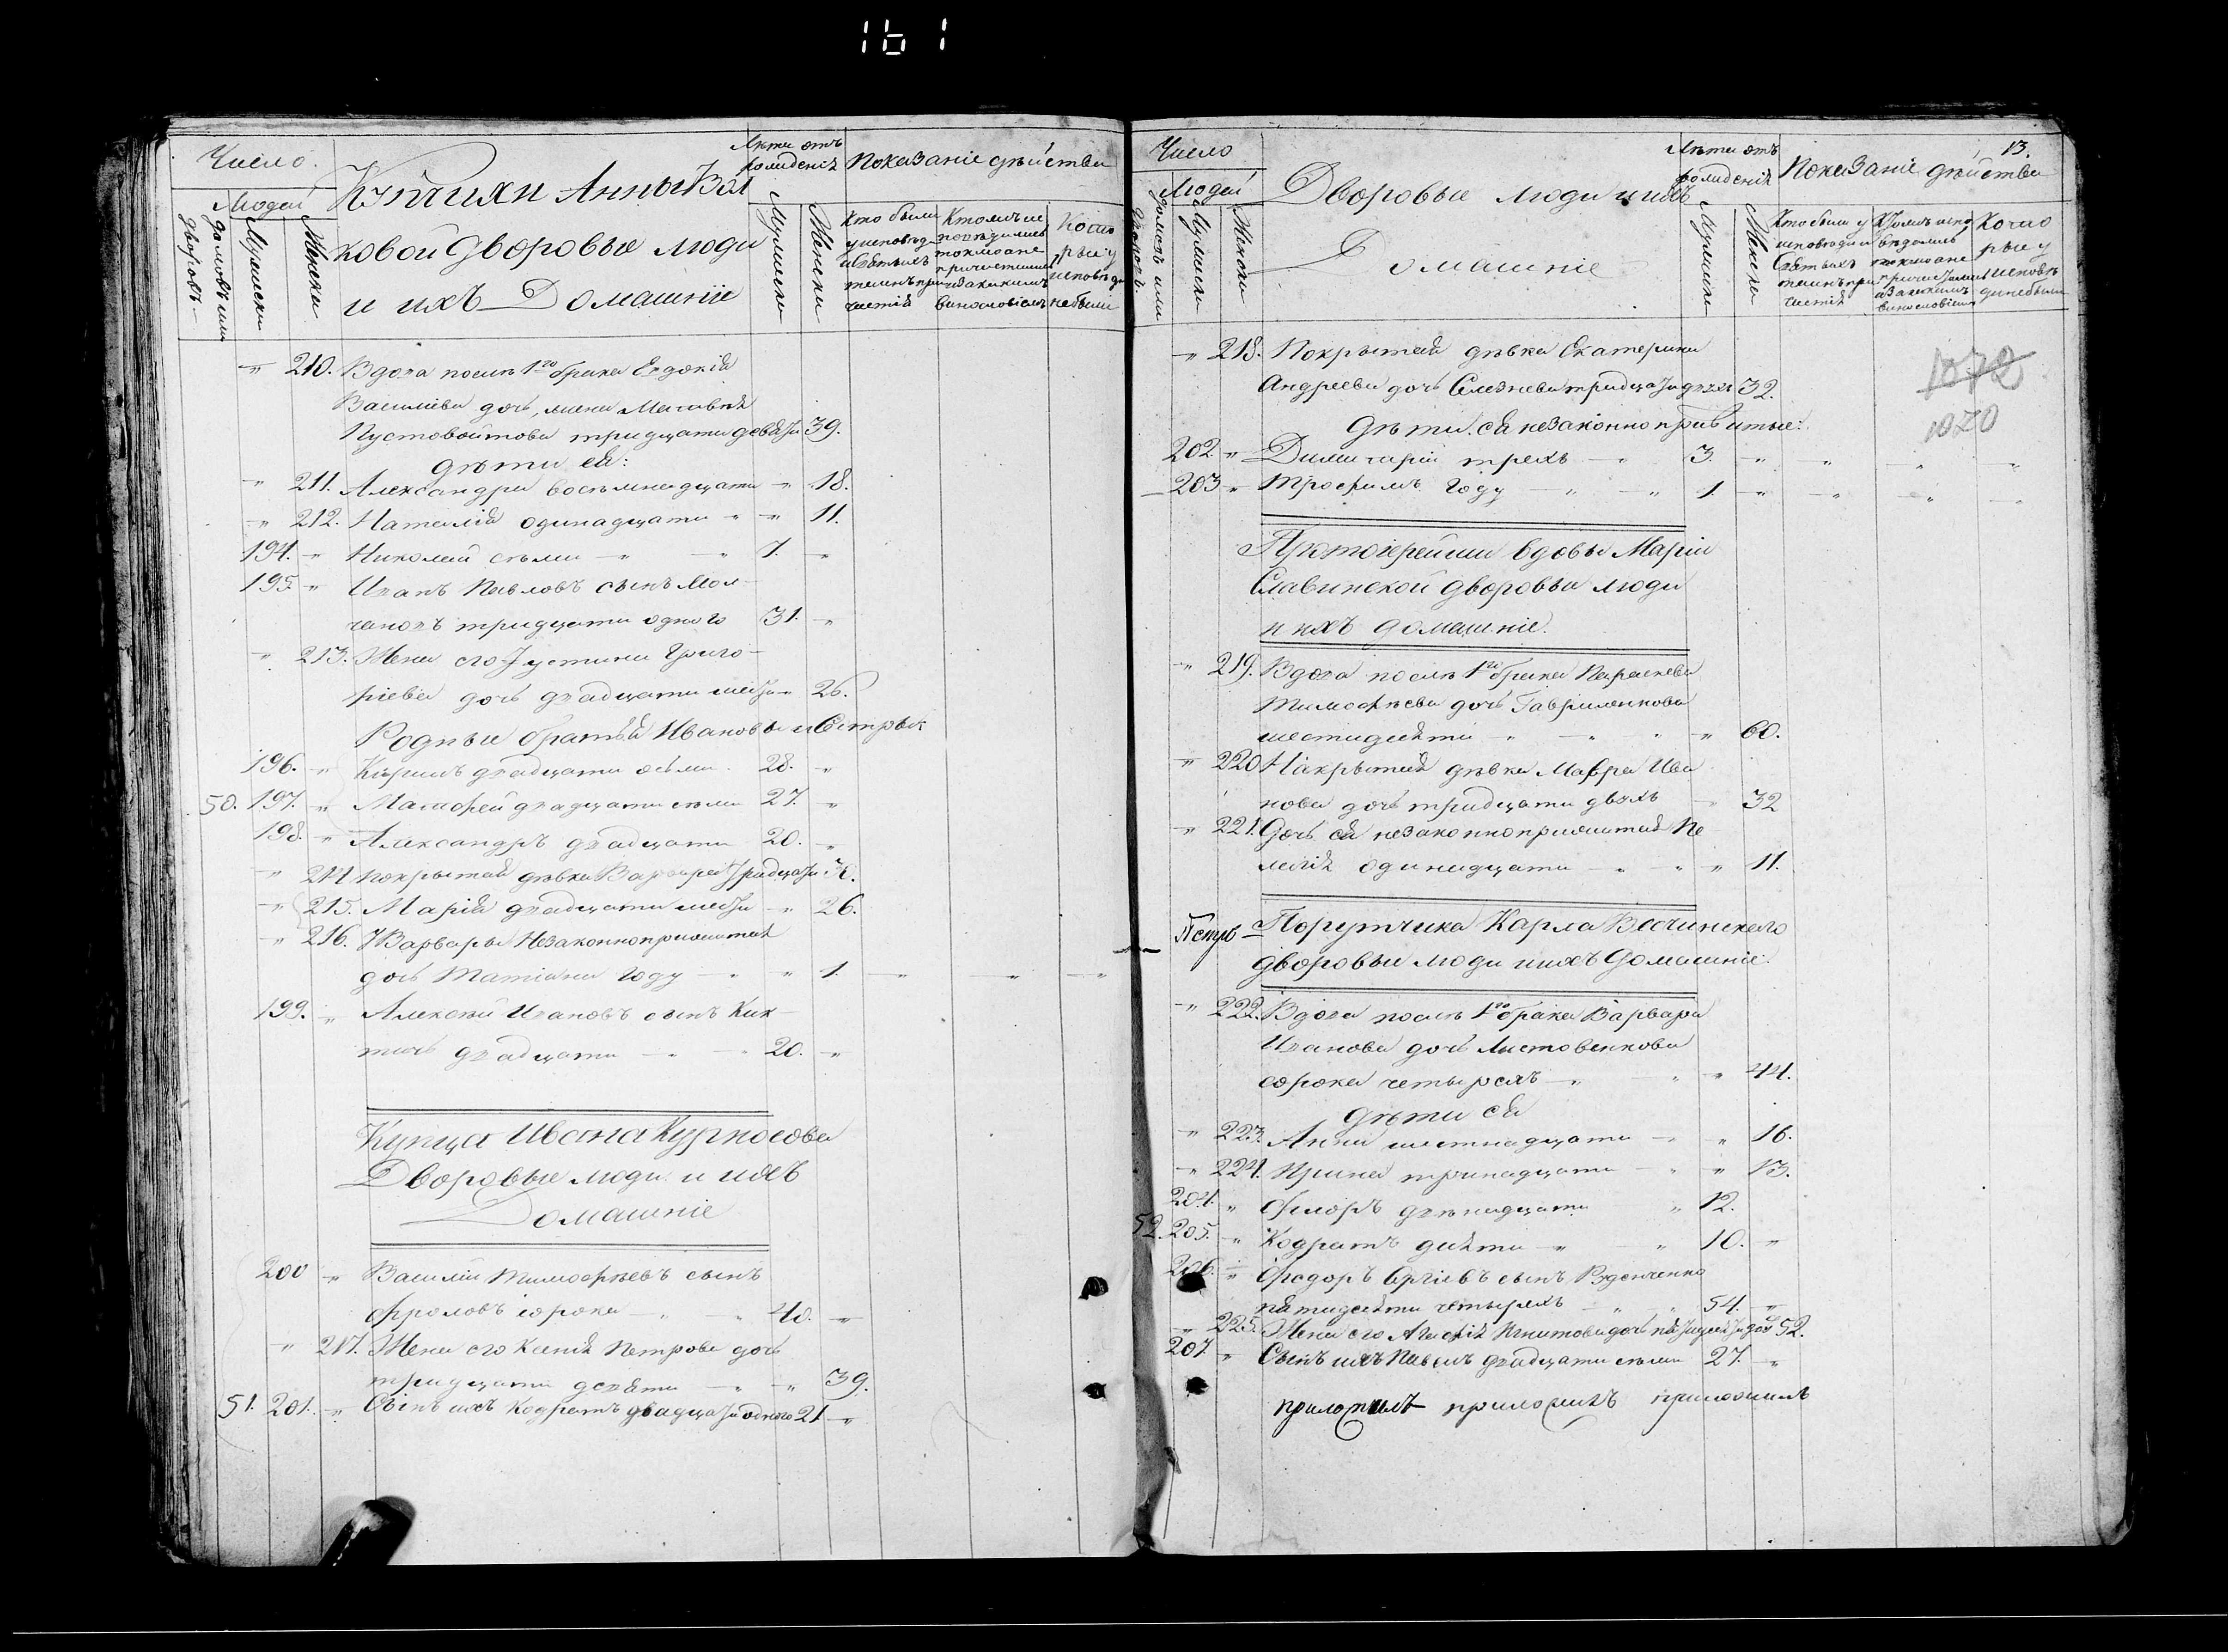 161
Число.
Людей
Дворовъ.
домовъ или
Мужески
Женски
Купчихи Анны Вол
ковой Дворовые люди
и ихъ Домашніе
Лета отъ
рожденія
Мужески
Женски
Показаніе действа
Кто были
у исповеди
и святыхъ
таинъ при
частія
Кто же ис
поведались
токмо а не
причастились
и за какимъ
винословіемъ
Кото
рые у
исповеди
не были
" 210. Вдова после 1го брака Евдокія
Василіева дочь, жена
Пустовойтова тридцати девяти 39.
дети ея:
" 211. Александра восемнадцати " 18.
" 212. Наталія одинадцати " " 11.
194. " Николай семи " " 7. "
195. " Иванъ Павловъ сынъ Мол-
чановъ тридцати одного 31. "
" 213. Жена его Іустина Григо-
ріева дочь двадцати шести " 26.
Родные братья Ивановы и Сестры
196. " двадцати осьми 28. "
50. 197. " Матфей двадцати семи 27. "
198. " Александръ двадцати 20. "
" 214 покрытая девка Варвара тридцати 30.
" 215. Марія двадцати шести " 26.
" 216. У Варвары незаконноприжитая
дочь Татіана году " " 1. " " "
199. " Алексей Ивановъ сынъ Кик-
тичь двадцати " " 20. "
Купца Ивана Курносова
Дворовые люди и ихъ
Домашніе
200 " Василій Тимофеевъ сынъ
Фроловъ сорока " " 40. "
" 217. Жена его Ксенія Петрова дочь
тридцати девяти " " 39.
51. 201. " Сынъ ихъ Кодратъ двадцати одного 21 "
Число
Людей
Дворовъ.
домовъ или
Мужески
Женски
Дворовые люди и ихъ
Домашніе
Лета отъ
рожденія
Мужески
Женски
13.
Показаніе действа
Кто были у
исповеди и
Святыхъ
таинъ при
частія
Кто же испо
ведались
токмо а не
причастились
и за какимъ
винословіемъ
Кото
рые у
испове
ди не были
" 218. Покрытая девка Екатерина
Андреева дочь Селезнева тридцати двухъ 32.
1872
1870
Дети ея незаконно прижитые:
202. " Димитрій трехъ " 3. " " " "
203 " Трофимъ году " " 1. " " " "
Протоіерейши вдовы Маріи
Славинской дворовые люди
и ихъ домашніе.
" 219. Вдова после 1го брака Параскева
Тимофеева дочь Гавриленкова
шестидесяти " " " " 60.
" 220 Накрытая девка Мавра Ива
нова дочь тридцати двухъ " 32
" 221. Дочь ея незаконноприжитая Пе
лагія одинадцати " " " 11.
Порутчика Карла
дворовые люди и ихъ домашніе.
" 222. Вдова после 1го брака Варвара
Иванова дочь Листовенкова
сорока четырехъ " " " 44.
дети ея
" 223. Анна шестнадцати " " 16.
" 224. Ирина тринадцати " " 13.
204. " Флоръ двенадцати " 12.
52. 205. " Кодратъ десяти " " 10. "
206. " Федоръ Сергіевъ сынъ Руденченко
пятидесяти четырехъ " " 54. "
" 225. Жена его Агафія Игнатова дочь пятидесяти двухъ 52.
207. " Сынъ ихъ Павелъ двадцати семи 27. "
приложилъ приложилъ приложилъ